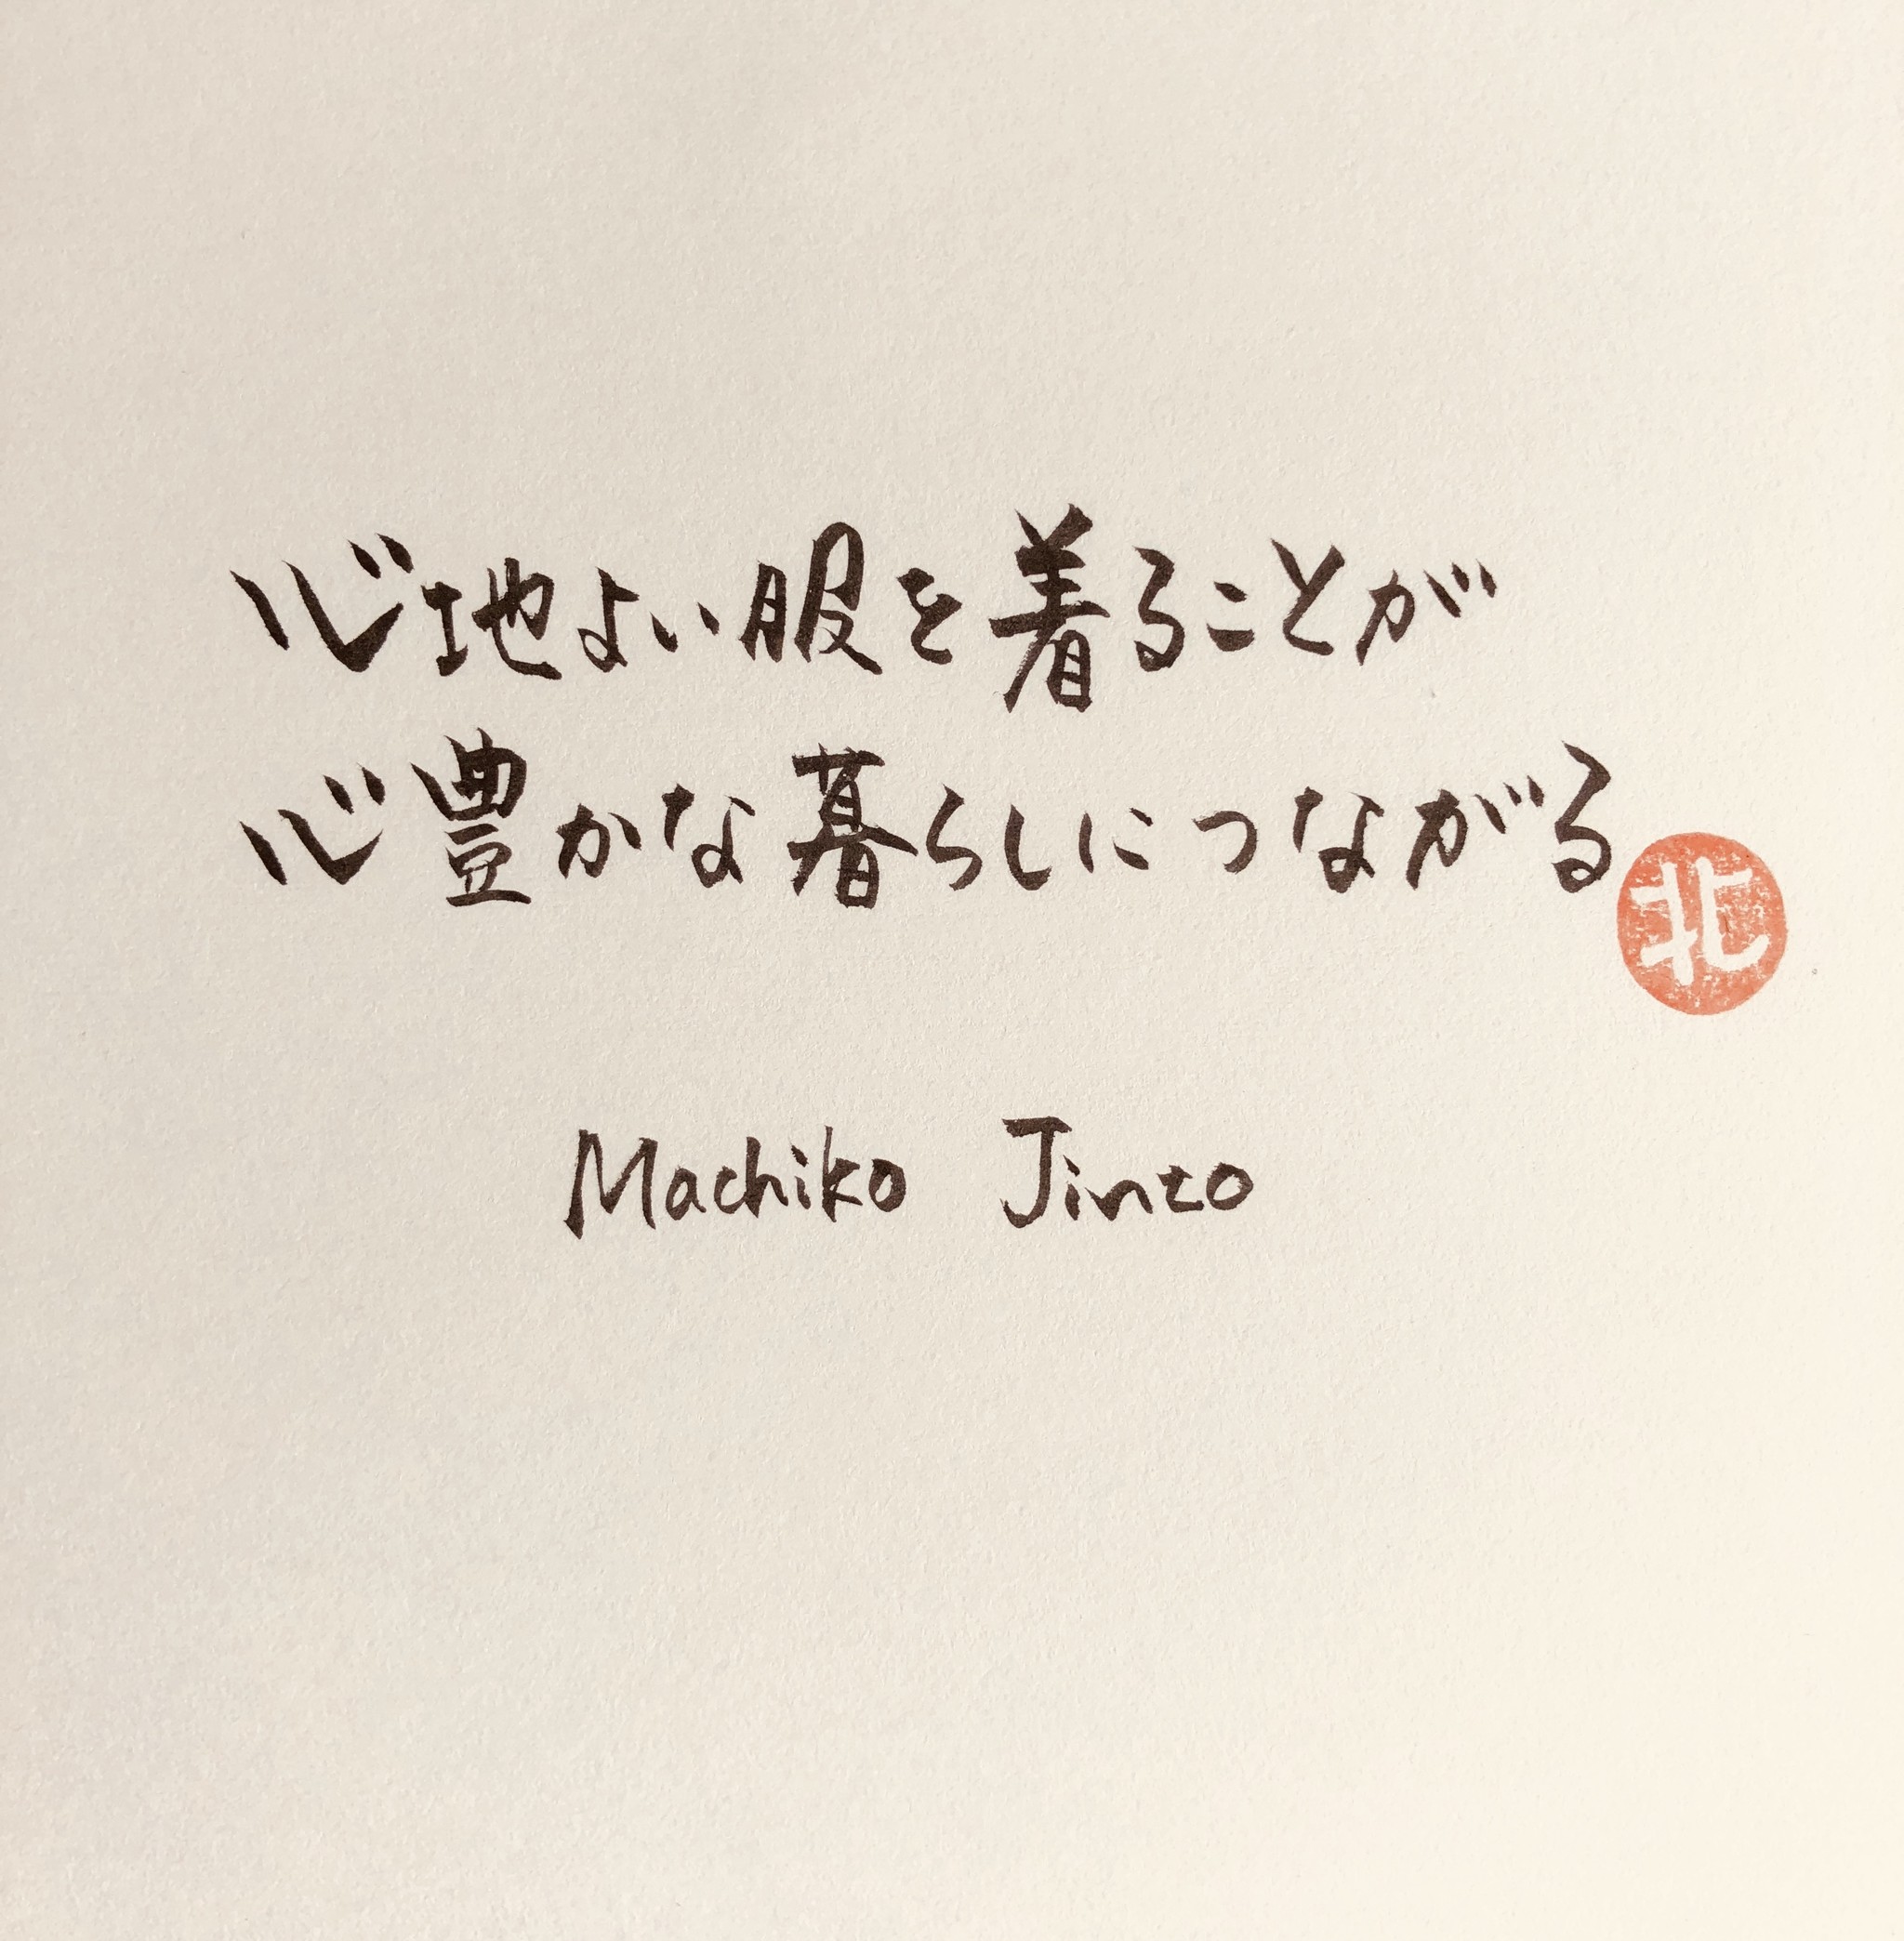 心地よい服を着ることが
心豊かな暮らしにつながる
北
Machiko Jinto